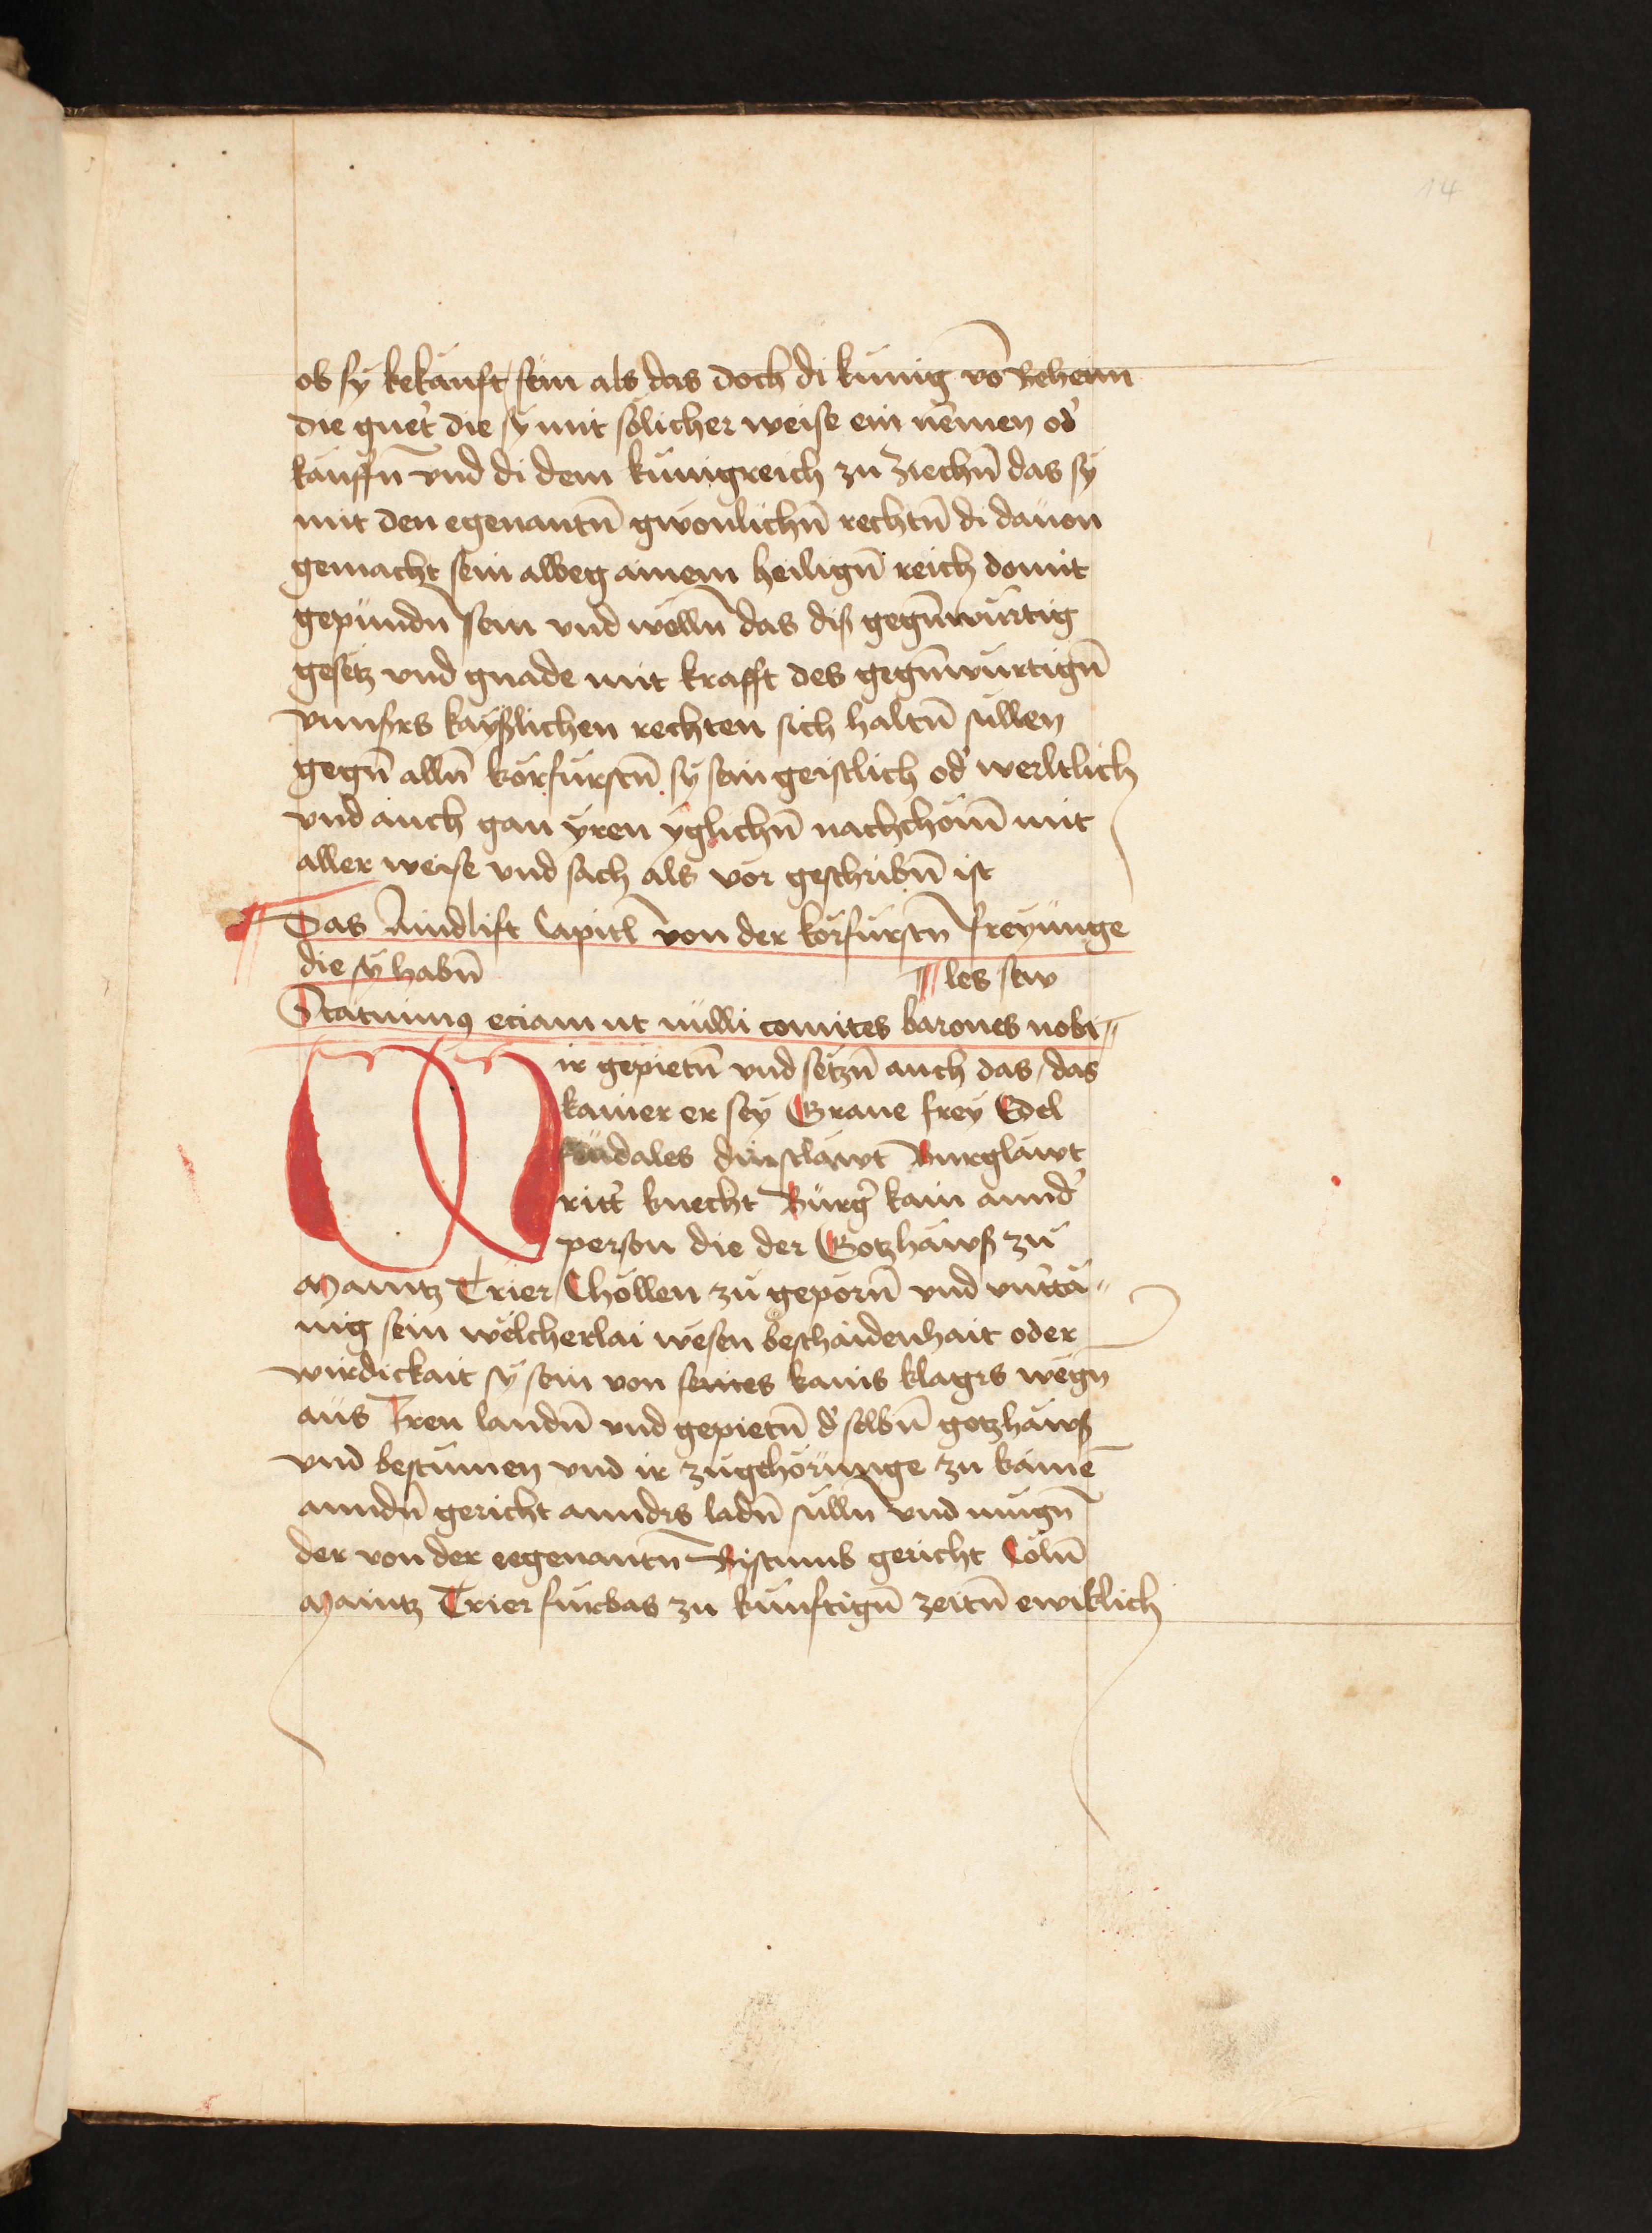 14
ob sy kekauft sein als das doch di kunig võ Beheim
die guet̓ die sy mit sölicher weise ein nemen od̓
kauffn̄ vnd di dem kunigreich zu ziechn̄ das sy
mit den egenantn̄ gwonlichn̄ rechtn̄ di dauon
gemacht sein alweg ainem heilign̄ reich domit
gepundn̄ sein vnd wölln̄ das diß gegn̄würtig
gesetz vnd gnade mit krafft des gegn̄würtign̄
vnnsers kayßlichen rechten sich haltn̄ süllen
gegn̄ alln̄ körfürstn̄ sy sein geistlich od̓ werltlich
vnd auch gan yren yglichn̄ nachchöm̄ mit
aller weise vnd sach als vor geschribn̄ ist
Das Aindlift Capitl von der körfürstn̄ freyunge
die sy habn̄
les sew
Statuimꝰ eciam ut nulli comites barones nobi
Wir gepietn̄ vnd setzn̄ auch das / das
kainer er sey Graue frey Edel
feudales dinstläwt Burgläwt
ritt̓ knecht Bürg̓ kain annd̓
person die der Gotzhäwß zu
Maintz Trier Chöllen zu geporn̄ vnd vnt̓tä
nig sein wölcherlai wesen beschaidenhait oder
wirdickait sy sein von seines kanis klagrs wegn̄
aus Iren landn̄ vnd gepietn̄ d̓ selbn̄ gotzhäwß
vnd bestumen vnd ir zugehörunge zu kainē
anndn̄ gericht anndrs ladn̄ sülln̄ vnd mügn̄
der von der eegenantn̄ Bistumb gericht Cöln̄
Maintz Trier fürbas zu künftign̄ zeitn̄ ewiklich